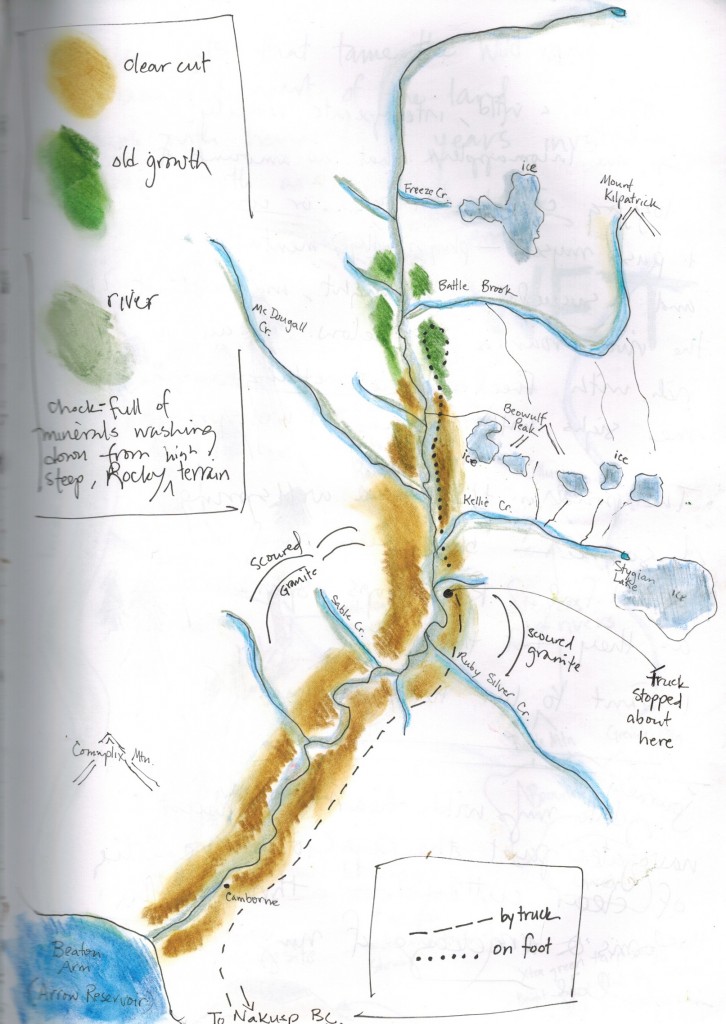 clear cut
old growth
river
chock-full of
minerals washing
down from high
steep, Rocky terrain
Freeze Cr.
ice
Mount
Kilpatrick
Battle Brook
McDougall
Cr.
Beowulf
Peak
ice
ice
Kellie Cr.
Stygian
Lake
ice
scoured
granite
Sable Cr.
scoured
granite
Ruby Silver Cr.
Truck
stopped
about
here
Comaplix Mtn.
Camborne
by truck
on foot
Beaton
Arm
Arrow Reservoir
To Nakusp BC.